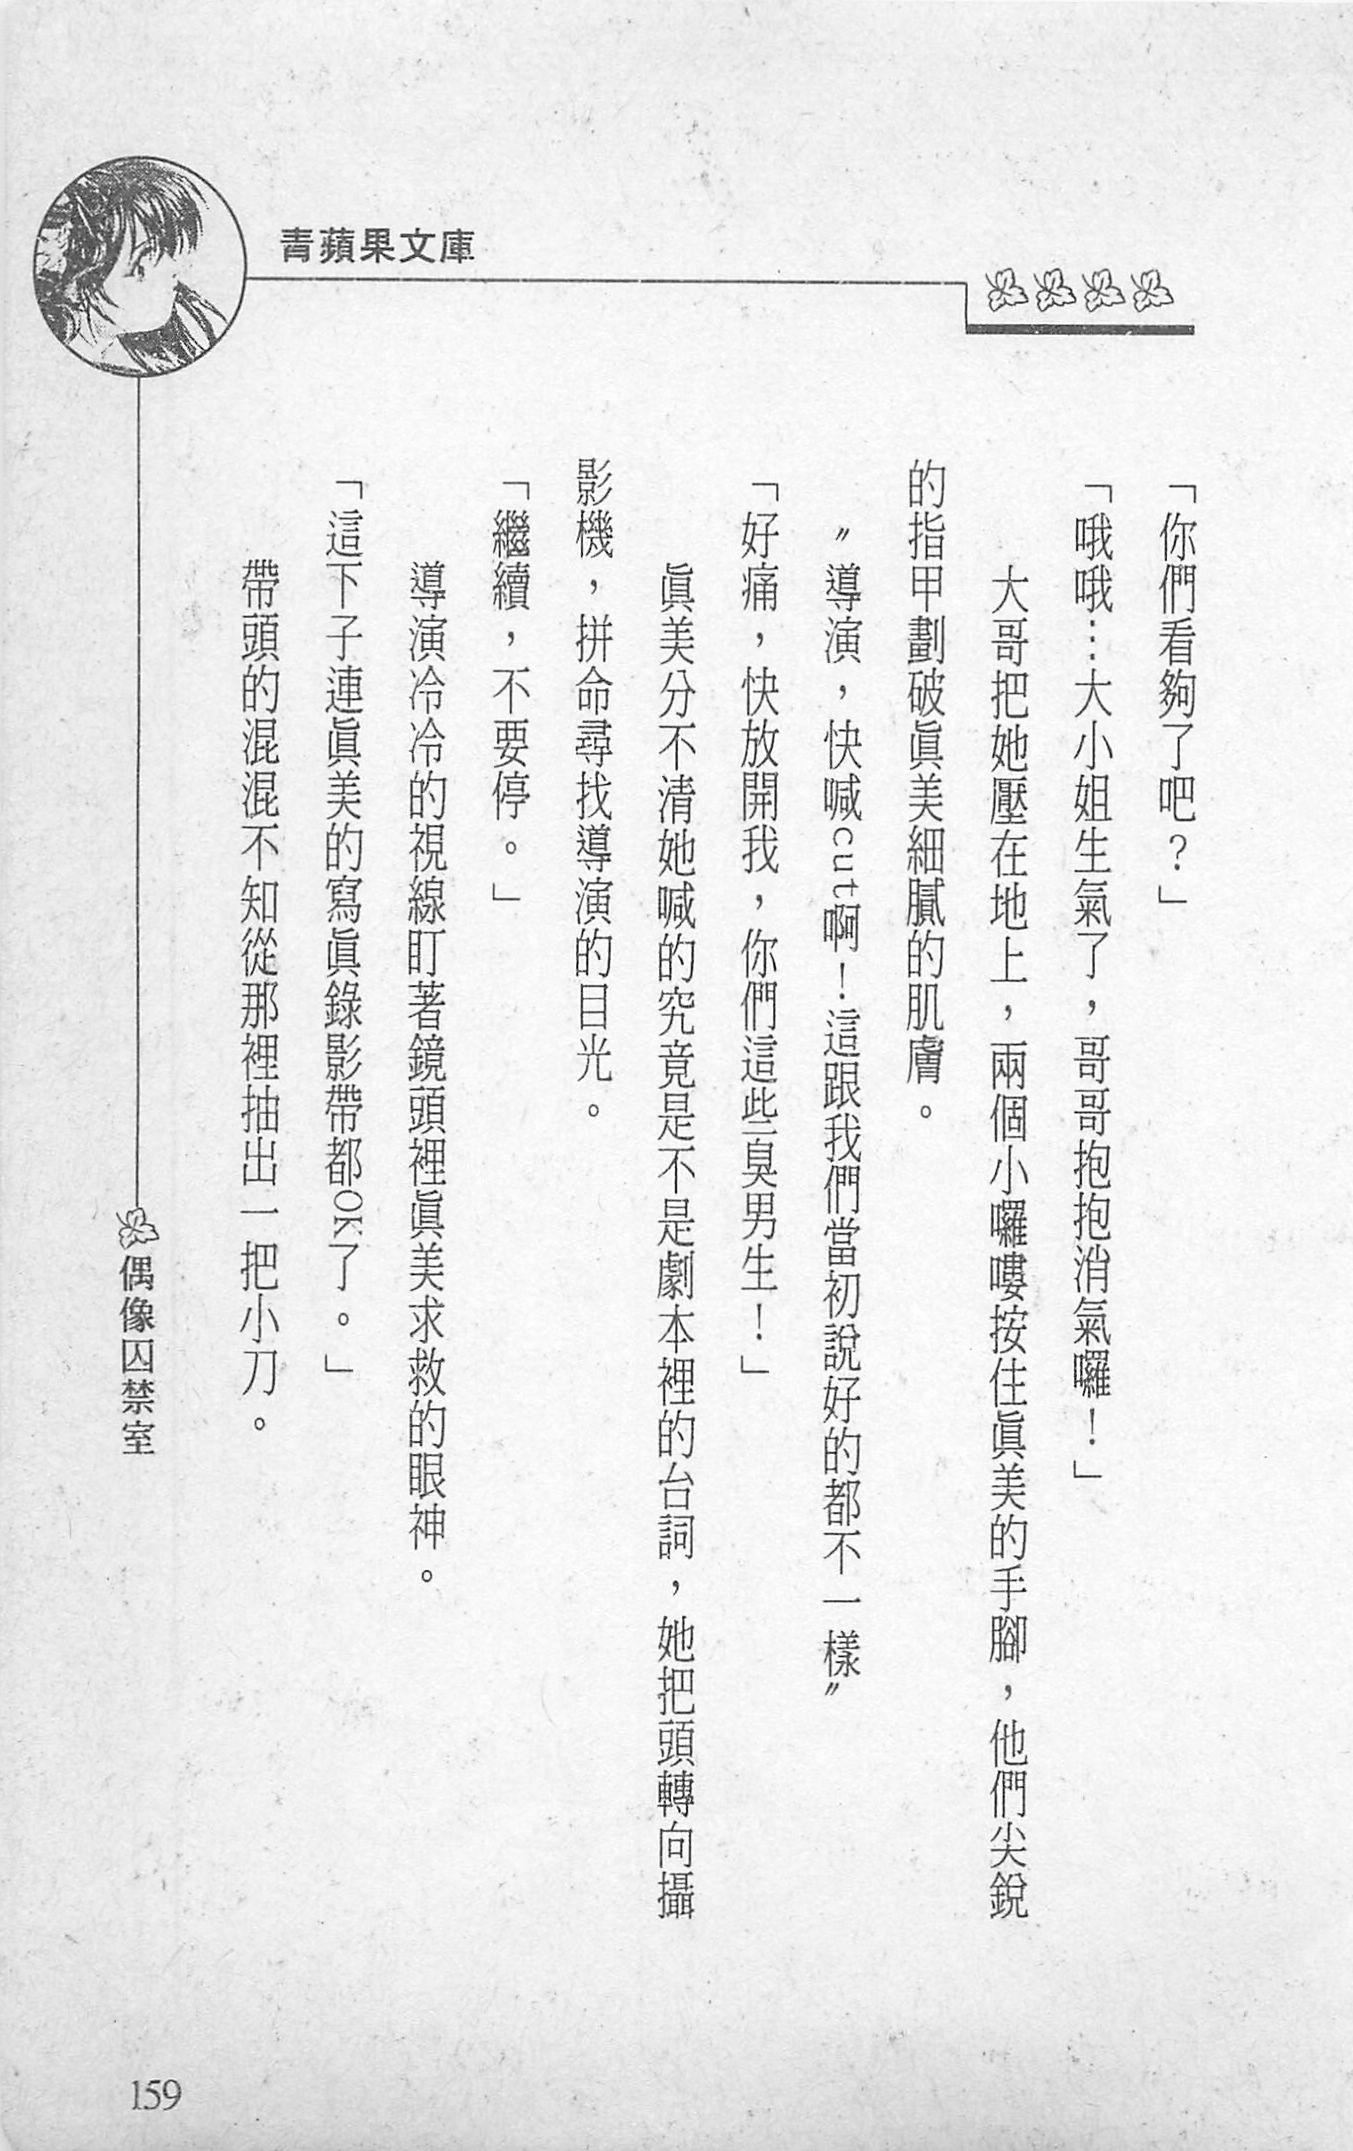 青蘋果文庫
「你們看夠了吧？」
「哦哦…大小姐生氣了，哥哥抱抱消氣囉！」
大哥把她壓在地上，兩個小囉嘍按住眞美的手腳，他們尖銳
的指甲劃破眞美細膩的肌膚。
〞導演，快喊cut啊！這跟我們當初說好的都不一樣〞
「好痛，快放開我，你們這些臭男生！」
眞美分不清她喊的究竟是不是劇本裡的台詞，她把頭轉向攝
影機，拼命尋找導演的目光。
「繼續，不要停。」
導演冷冷的視線盯著鏡頭裡眞美求救的眼神。
「這下子連眞美的寫眞錄影帶都OK了。」
帶頭的混混不知從那裡抽出一把小刀。
偶像囚禁室
159